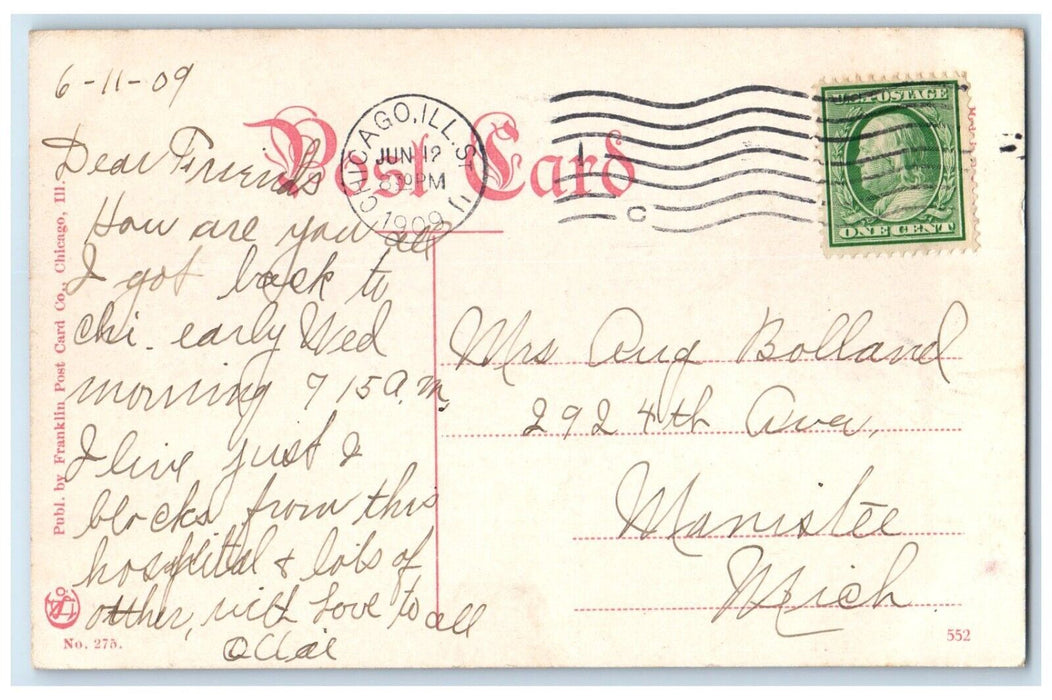 6-11-09
Post Card
CHICAGO, ILL.
JUN 12
8 PM
1909
U.S. POSTAGE
ONE CENT
Dear Friends
How are you all
I got back to
chi. early Wed
morning 7 15 a.m.
I live just 2
blocks from this
hospital & lots of
other, with Love to all
Mrs Aug Bolland
292 4th Ave,
Manistee
Mich
Publ. by Franklin Post Card Co., Chicago, Ill.
No. 275.
552